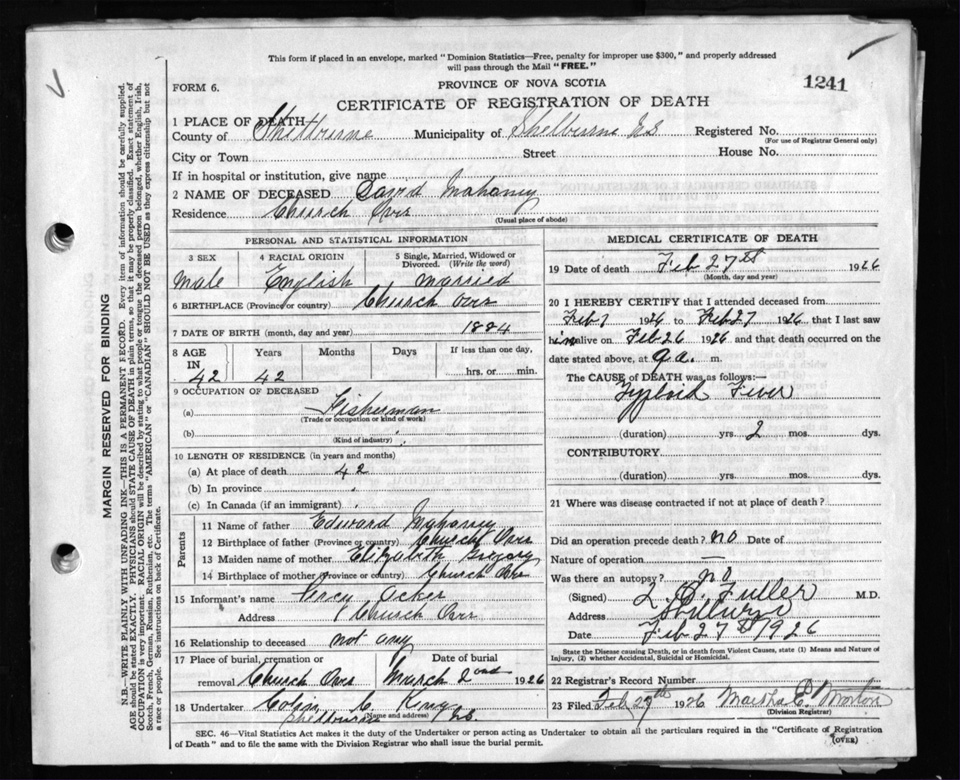 This form if placed in an envelope, marked "Dominion Statistics—Free, penalty for improper use $300," and properly addressed
will pass through the Mail "FREE."
FORM 6.
PROVINCE OF NOVA SCOTIA
1241
CERTIFICATE OF REGISTRATION OF DEATH
1 PLACE OF DEATH
County of Shelburne Municipality of Shelburne N.S Registered No.
(For use of Registrar General only)
City or Town Street House No.
If in hospital or institution, give name
2 NAME OF DECEASED Mahaney
Residence Church Over
(Usual place of abode)
PERSONAL AND STATISTICAL INFORMATION
3 SEX 4 RACIAL ORIGIN 5 Single, Married, Widowed or Divorced. (Write the word)
male English married
6 BIRTHPLACE (Province or country) Church Over
7 DATE OF BIRTH (month, day and year) 1884
8 AGE IN Years Months Days If less than one day,
42 42 hrs. or min.
9 OCCUPATION OF DECEASED
(a) Fisherman
(Trade or occupation or kind of work)
(b)
(Kind of industry)
10 LENGTH OF RESIDENCE (in years and months)
(a) At place of death 42
(b) In province
(c) In Canada (if an immigrant)
Parents
11 Name of father Edward Mahaney
12 Birthplace of father (Province or country) Church Over
13 Maiden name of mother Elizabeth Gregory
14 Birthplace of mother (Province or country) Church Over
15 Informant's name Percy Acker
Address Church Over
16 Relationship to deceased not any
17 Place of burial, cremation or removal Date of burial
Church Over March 2nd 1926
18 Undertaker C. King
Shelburne N.S.
(Name and address)
MEDICAL CERTIFICATE OF DEATH
19 Date of death Feb 27st 1926
(Month, day and year)
20 I HEREBY CERTIFY that I attended deceased from
Feb 1 1926 to Feb 27 1926 that I last saw
him alive on Feb 26 1926 and that death occurred on the
date stated above, at 9 a. m.
The CAUSE of DEATH was as follows:—
Typhoid Fever
(duration) yrs. 2 mos. dys.
CONTRIBUTORY
(duration) yrs. mos. dys.
21 Where was disease contracted if not at place of death?
Did an operation precede death? no Date of
Nature of operation —
Was there an autopsy? no
(Signed) L. O. Fuller M.D.
Address Shelburne
Date Feb 27st 1926
State the Disease causing Death, or in death from Violent Causes, state (1) Means and Nature of
Injury, (2) whether Accidental, Suicidal or Homicidal.
22 Registrar's Record Number
23 Filed Feb 27th 1926 Martha E. Morton
(Division Registrar)
SEC. 46—Vital Statistics Act makes it the duty of the Undertaker or person acting as Undertaker to obtain all the particulars required in the "Certificate of Registration
of Death" and to file the same with the Division Registrar who shall issue the burial permit.
(OVER)
MARGIN RESERVED FOR BINDING
N.B.—WRITE PLAINLY WITH UNFADING INK—THIS IS A PERMANENT RECORD. Every item of information should be carefully supplied.
AGE should be stated EXACTLY. PHYSICIANS should STATE CAUSE OF DEATH in plain terms, so that it may be properly classified. Exact statement of
OCCUPATION is very important. RACIAL ORIGIN will be described by stating to what people or tongue the deceased person belonged, whether English, Irish,
Scotch, French, German, Russian, Ruthenian, etc. The terms "AMERICAN" or "CANADIAN" SHOULD NOT BE USED as they express citizenship but not
a race or people. See instructions on back of Certificate.